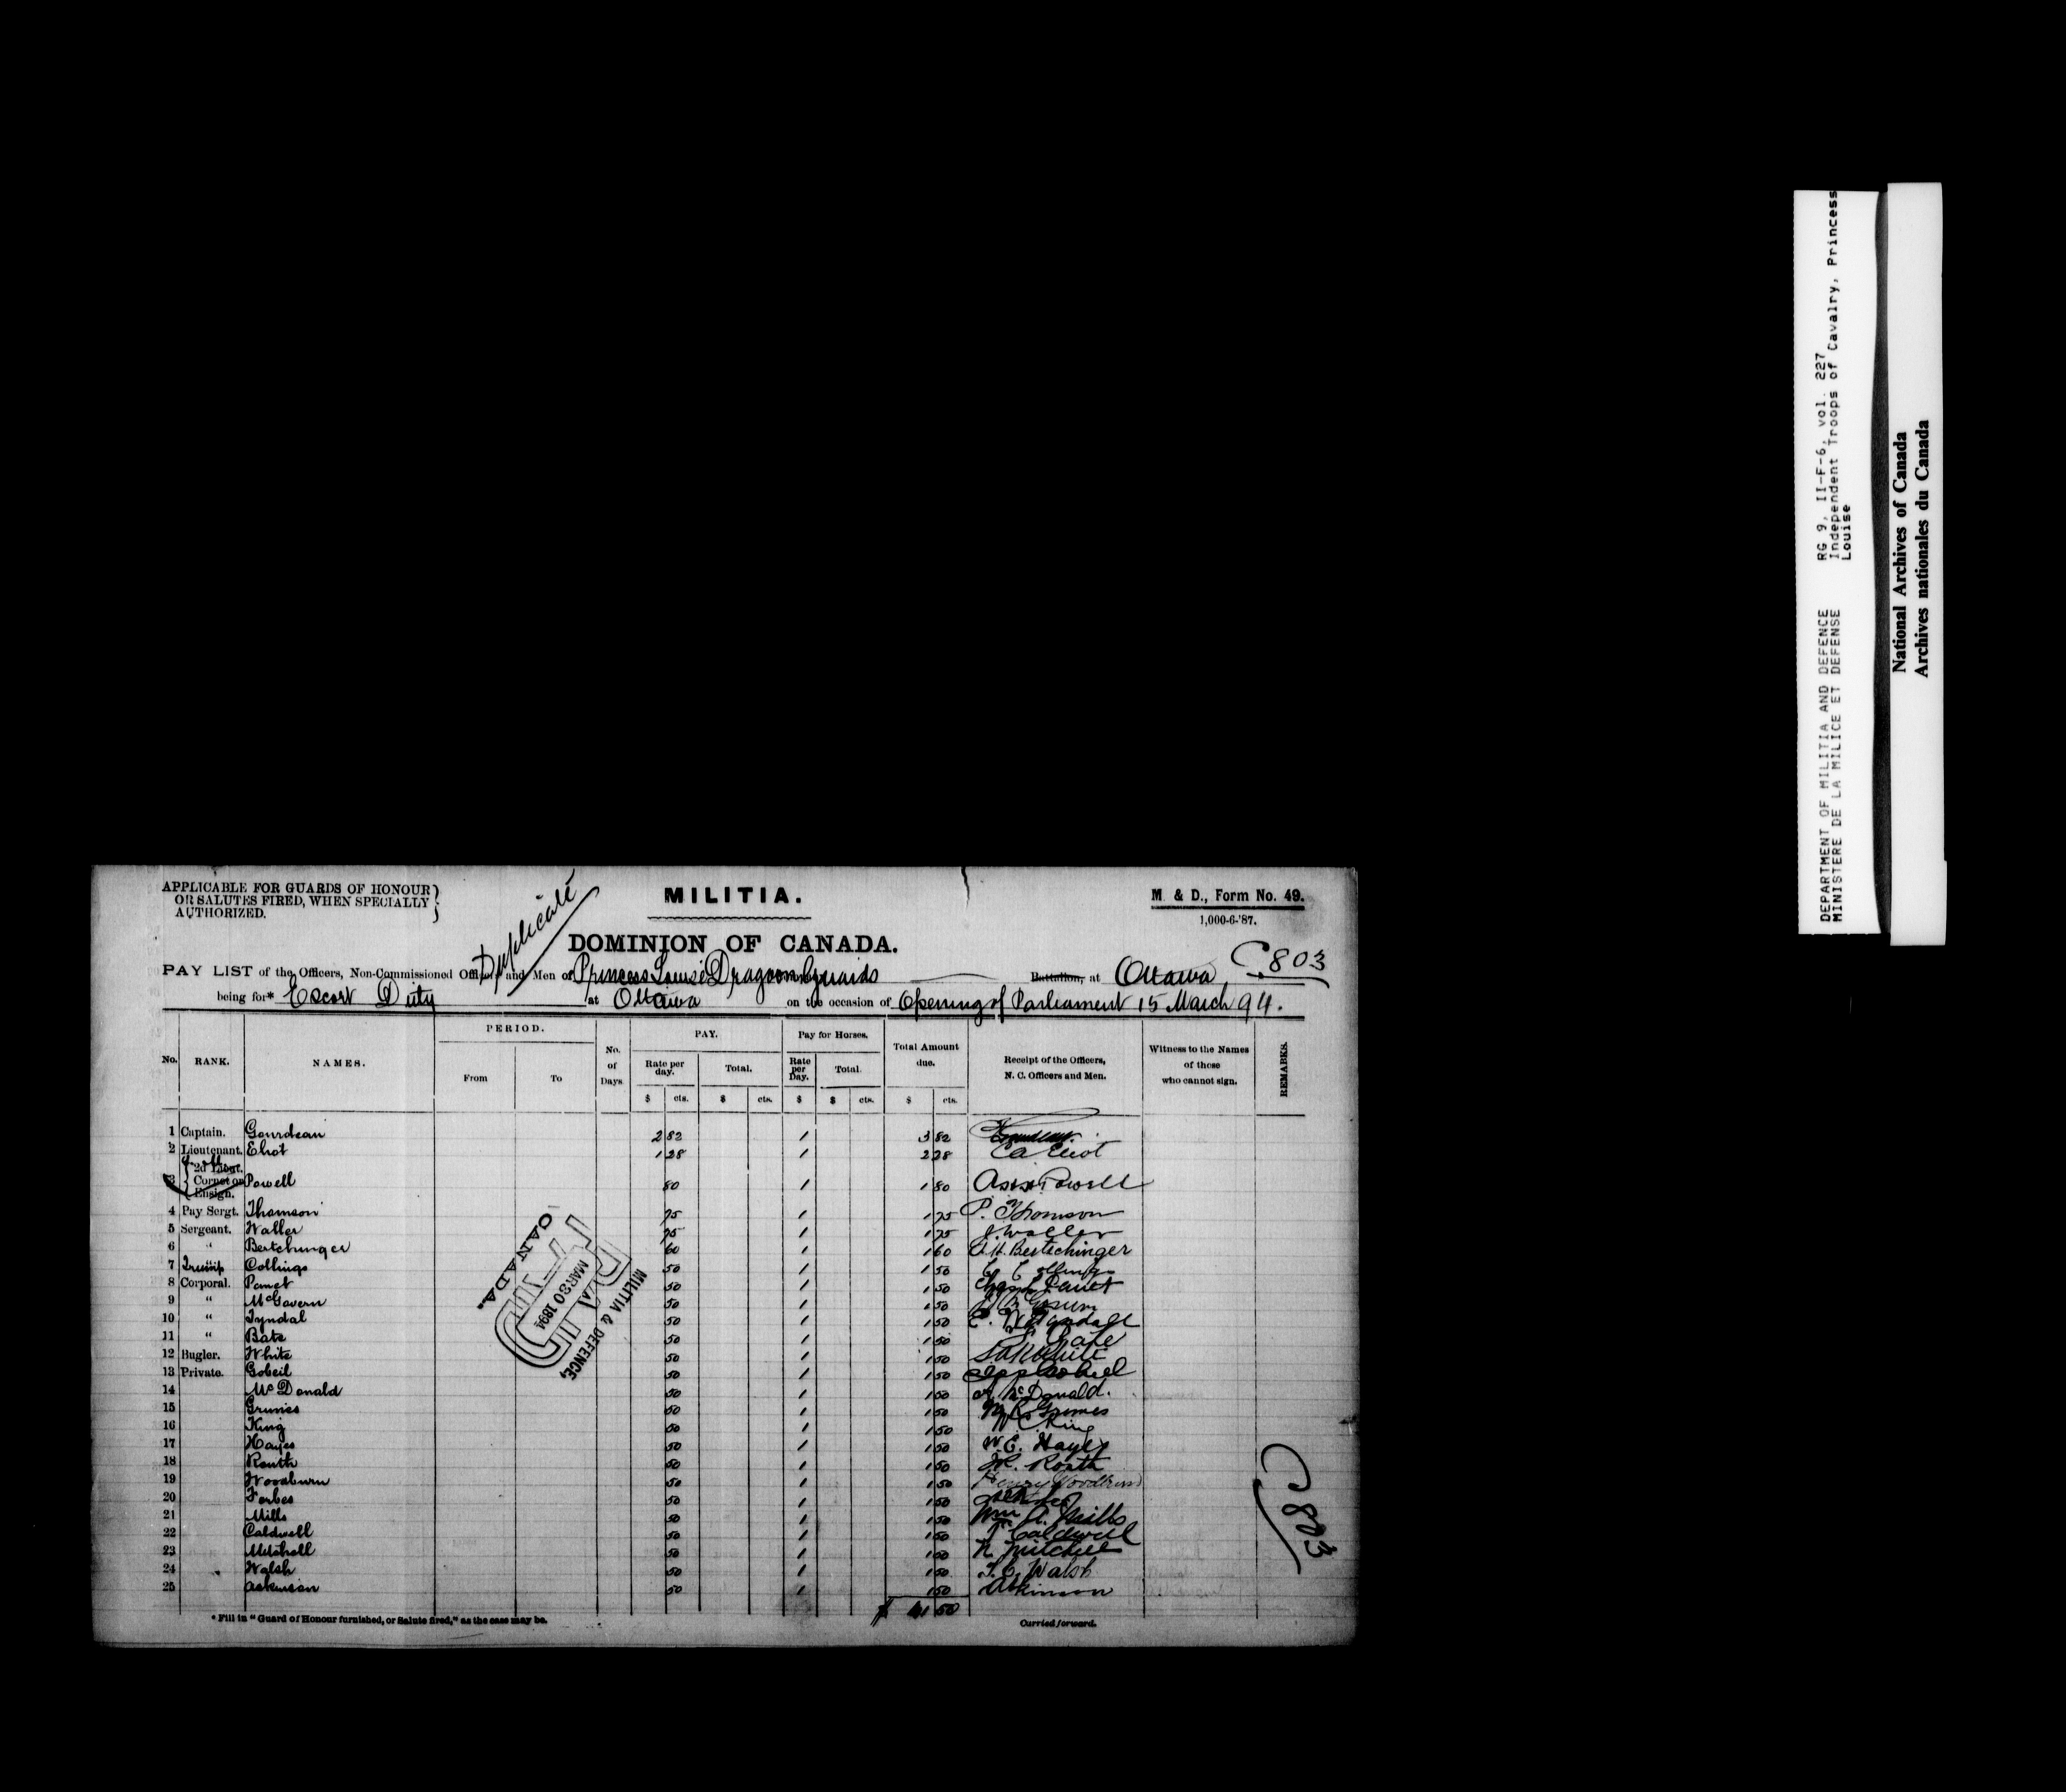 APPLICABLE FOR GUARDS OF HONOUR
OR SALUTES FIRED, WHEN SPECIALLY
AUTHORIZED.
Duplicate
MILITIA.
M. & D., Form No. 49.
1,000-6-'87.
DOMINION OF CANADA.
C803
PAY LIST of the Officers, Non-Commissioned Officers and Men of Princess Louise Dragoon Guards Battalion, at Ottawa
being for* Escort Duty at Ottawa on the occasion of Opening of Parliament 15 March 94.
No. RANK. NAMES. PERIOD. From To No. of Days PAY. Rate per day. $ cts. Total. $ cts. Pay for Horses. Rate per Day. $ Total. $ cts. Total Amount due. $ cts. Receipt of the Officers, N. C. Officers and Men. Witness to the Names of those who cannot sign. REMARKS.
1 Captain. Gourdeau 2 82 1 3 82
2 Lieutenant. Eliot 1 28 1 2 28 Eliot
3 2d Lieut. Cornet or Ensign. Powell 80 1 1 80 Powell
4 Pay Sergt. Thomson 75 1 1 75 P. Thomson
5 Sergeant. Waller 75 1 1 75 J. Waller
6 " Bertchinger 60 1 1 60 Bertschinger
7 Trump Collings 50 1 1 50 Collings
8 Corporal. Panet 50 1 1 50 Panet
9 " McGovern 50 1 1 50
10 " Tyndal 50 1 1 50 Tyndall
11 " Bate 50 1 1 50 Bate
12 Bugler. White 50 1 1 50 White
13 Private. Gobeil 50 1 1 50 Gobeil
14 McDonald 50 1 1 50 McDonald.
15 Grimes 50 1 1 50 Grimes
16 King 50 1 1 50 King
17 Hayes 50 1 1 50 W. E. Hayes
18 Routh 50 1 1 50 Routh
19 Woodburn 50 1 1 50 Henry Woodburn
20 Forbes 50 1 1 50
21 Mills 50 1 1 50 Wm A. Mills
22 Caldwell 50 1 1 50 Caldwell
23 Mitchell 50 1 1 50 Mitchell
24 Walsh 50 1 1 50 Walsh
25 Askinson 50 1 1 50 Atkinson
$ 41 50
* Fill in "Guard of Honour furnished, or Salute fired," as the case may be.
Carried forward.
MILITIA & DEFENCE,
MAR 30 1894
CANADA.
C803
DEPARTMENT OF MILITIA AND DEFENCE
MINISTERE DE LA MILICE ET DEFENSE
RG 9, II-F-6, vol. 227
Independent Troops of Cavalry, Princess
Louise
National Archives of Canada
Archives nationales du Canada